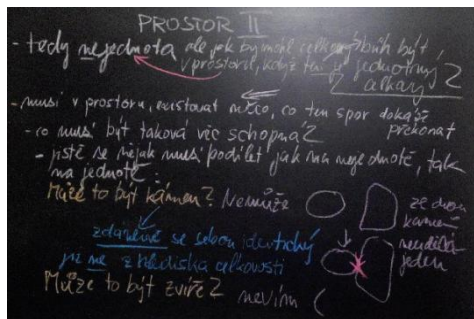 PROSTOR II
- tedy nejednota ale jak by mohl celkový bůh být
v prostoru, když ten je jednotný
a celkový ?
- musí v prostoru existovat něco, co ten spor dokáže
překonat
- co musí být taková věc schopná?
- jistě se nějak musí podílet jak na nejednotě, tak
na jednotě.
Může to být kámen? Nemůže
ze dvou
kamenů
neuděláš
jeden
zdánlivě se sebou identický
již ne z hlediska celkovosti
Může to být zvíře? nevím (